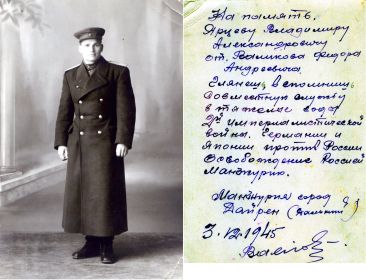 На память.
Ярцеву Владимиру
Александровичу
от Валикова Федора
Андреевича
Глянешь, вспомнишь
совместную службу
в тяжелые годы
2й империалистической
войны. Германии и
Японии против России
Освобождение Россией
Манжурию.
Манжурия город
Дайрен
3.12.1945